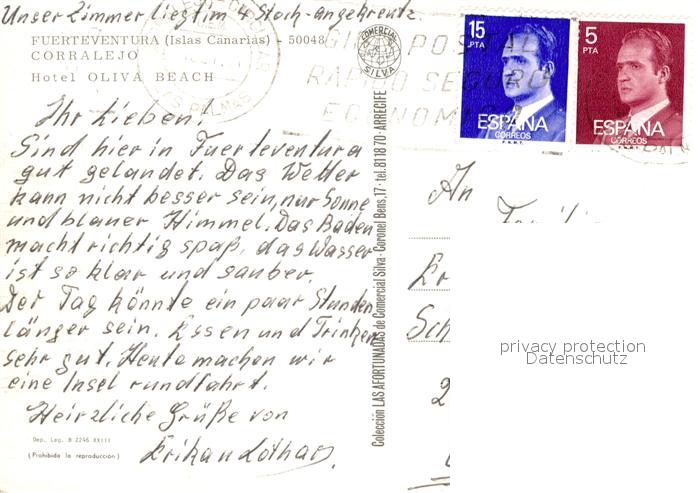 Unser Zimmer liegt im 4 Stock - angekreutz.
FUERTEVENTURA (Islas Canarias) - 50048
CORRALEJO
Hotel OLIVA BEACH
Ihr Lieben!
Sind hier in Fuerteventura
gut gelandet. Das Wetter
kann nicht besser sein, nur Sonne
und blauer Himmel. Das Baden
macht richtig spaß, das Wasser
ist so klar und sauber.
Der Tag könnte ein paar Stunden
länger sein. Essen und Trinken
sehr gut. Heute machen wir
eine Insel rundfahrt.
Herzliche Grüße von
Erika u Lothar
Dep. Leg. B 2246 XXIII
(Prohibida la reproducción)
Colección LAS AFORTUNADAS de Comercial Silva - Coronel Bens, 17 - tel. 81 18 70 - ARRECIFE
COMERCIAL
SILVA
GIRO POSTAL
RAPIDO SEGURO
ECONOMICO
LAS PALMAS
15
PTA
ESPAÑA
CORREOS
F.N.M.T.
5
PTA
ESPAÑA
CORREOS
F.N.M.T.
An
Er
Sch
2
privacy protection
Datenschutz